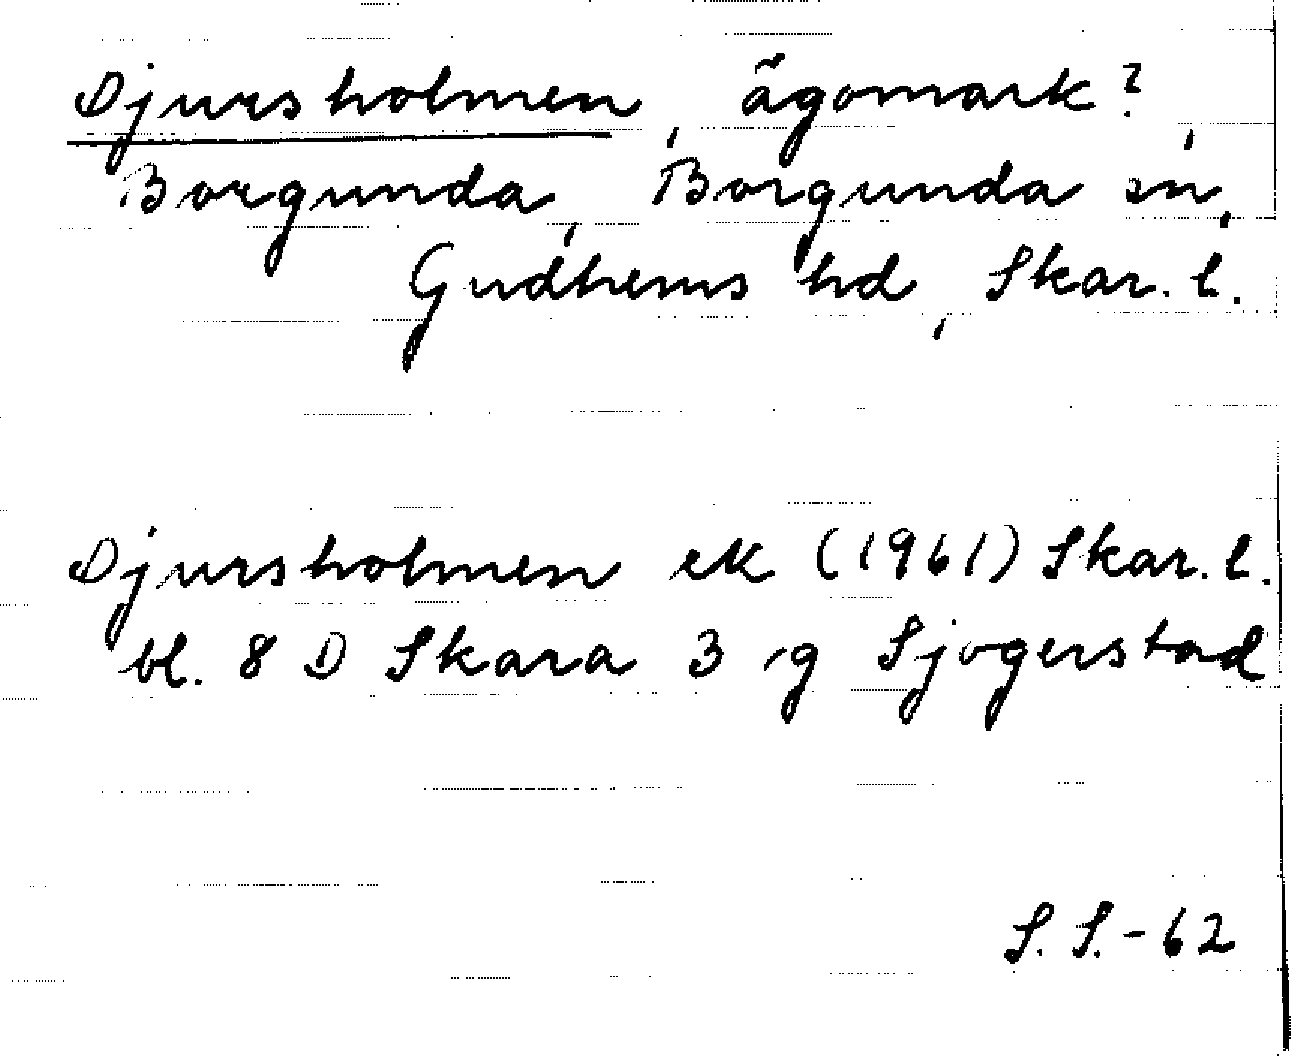 Djursholmen, ägomark?,
Borgunda, Borgunda sn,
Gudhems hd, Skar. l.
Djursholmen ek (1961) Skar. l.
bl. 8 D Skara 3 g Sjogerstad
S. S. - 62